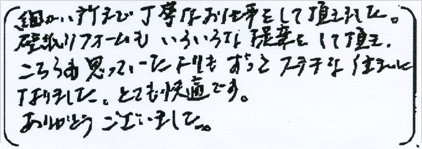 細かい所まで丁寧なお仕事をして頂きました。
壁紙リフォームもいろいろな提案をして頂き、
こちらも思っていたよりもずっとステキな住まいに
なりました。とても快適です。
ありがとうございました。